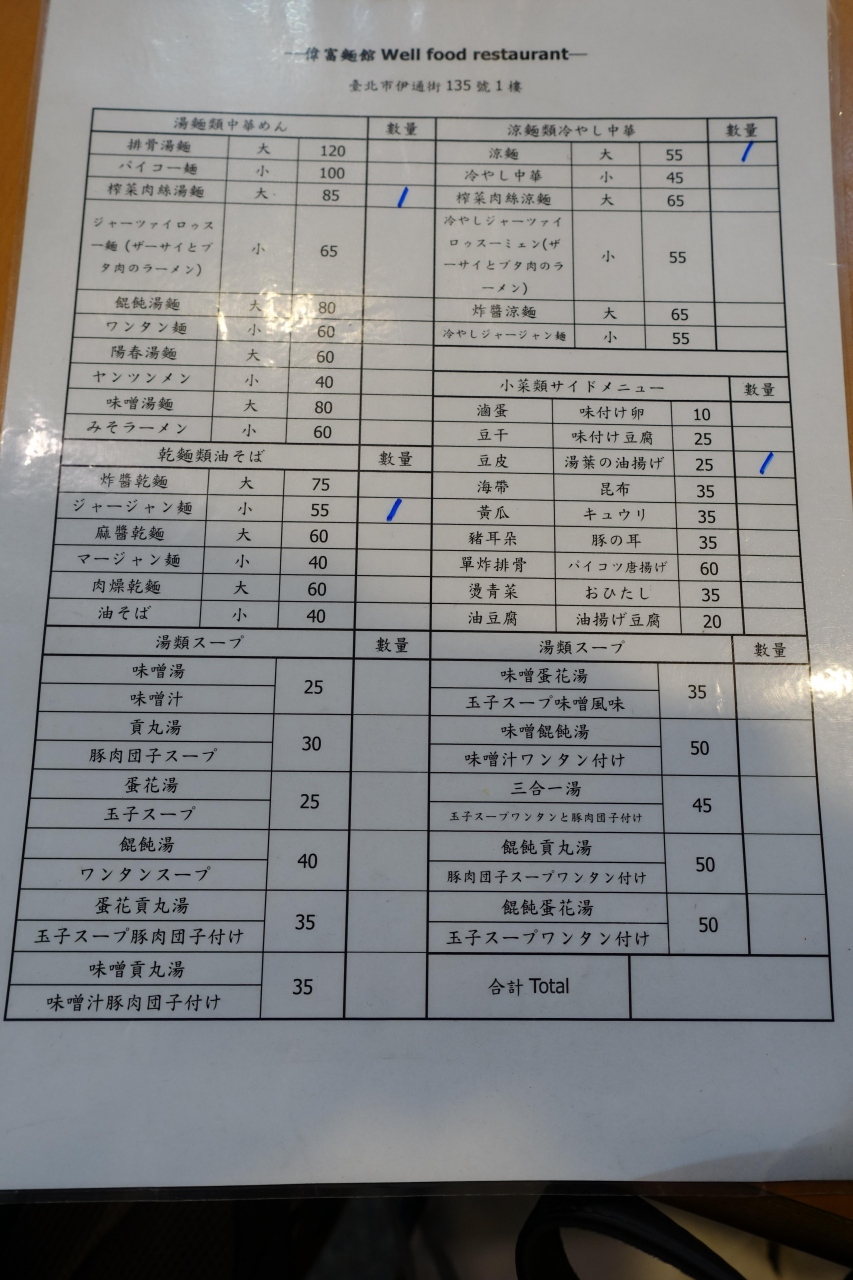 偉富麵館 Well food restaurant
臺北市伊通街 135 號 1 樓
湯麵類中華めん 數量
排骨湯麵 大 120
パイコー麵 小 100
榨菜肉絲湯麵 大 85 /
ジャーツァイロゥス
ー麵 (ザーサイとブ
タ肉のラーメン) 小 65
餛飩湯麵 大 80
ワンタン麵 小 60
陽春湯麵 大 60
ヤンツンメン 小 40
味噌湯麵 大 80
みそラーメン 小 60
乾麵類油そば 數量
炸醬乾麵 大 75
ジャージャン麵 小 55 /
麻醬乾麵 大 60
マージャン麵 小 40
肉燥乾麵 大 60
油そば 小 40
湯類スープ 數量
味噌湯
味噌汁 25
貢丸湯
豚肉団子スープ 30
蛋花湯
玉子スープ 25
餛飩湯
ワンタンスープ 40
蛋花貢丸湯
玉子スープ豚肉団子付け 35
味噌貢丸湯
味噌汁豚肉団子付け 35
涼麵類冷やし中華 數量
涼麵 大 55 /
冷やし中華 小 45
榨菜肉絲涼麵 大 65
冷やしジャーツァイ
ロゥスーミェン(ザ
ーサイとブタ肉のラ
ーメン) 小 55
炸醬涼麵 大 65
冷やしジャージャン麵 小 55
小菜類サイドメニュー 數量
滷蛋 味付け卵 10
豆干 味付け豆腐 25
豆皮 湯葉の油揚げ 25 /
海帶 昆布 35
黃瓜 キュウリ 35
豬耳朵 豚の耳 35
單炸排骨 パイコツ唐揚げ 60
燙青菜 おひたし 35
油豆腐 油揚げ豆腐 20
湯類スープ 數量
味噌蛋花湯
玉子スープ味噌風味 35
味噌餛飩湯
味噌汁ワンタン付け 50
三合一湯
玉子スープワンタンと豚肉団子付け 45
餛飩貢丸湯
豚肉団子スープワンタン付け 50
餛飩蛋花湯
玉子スープワンタン付け 50
合計 Total